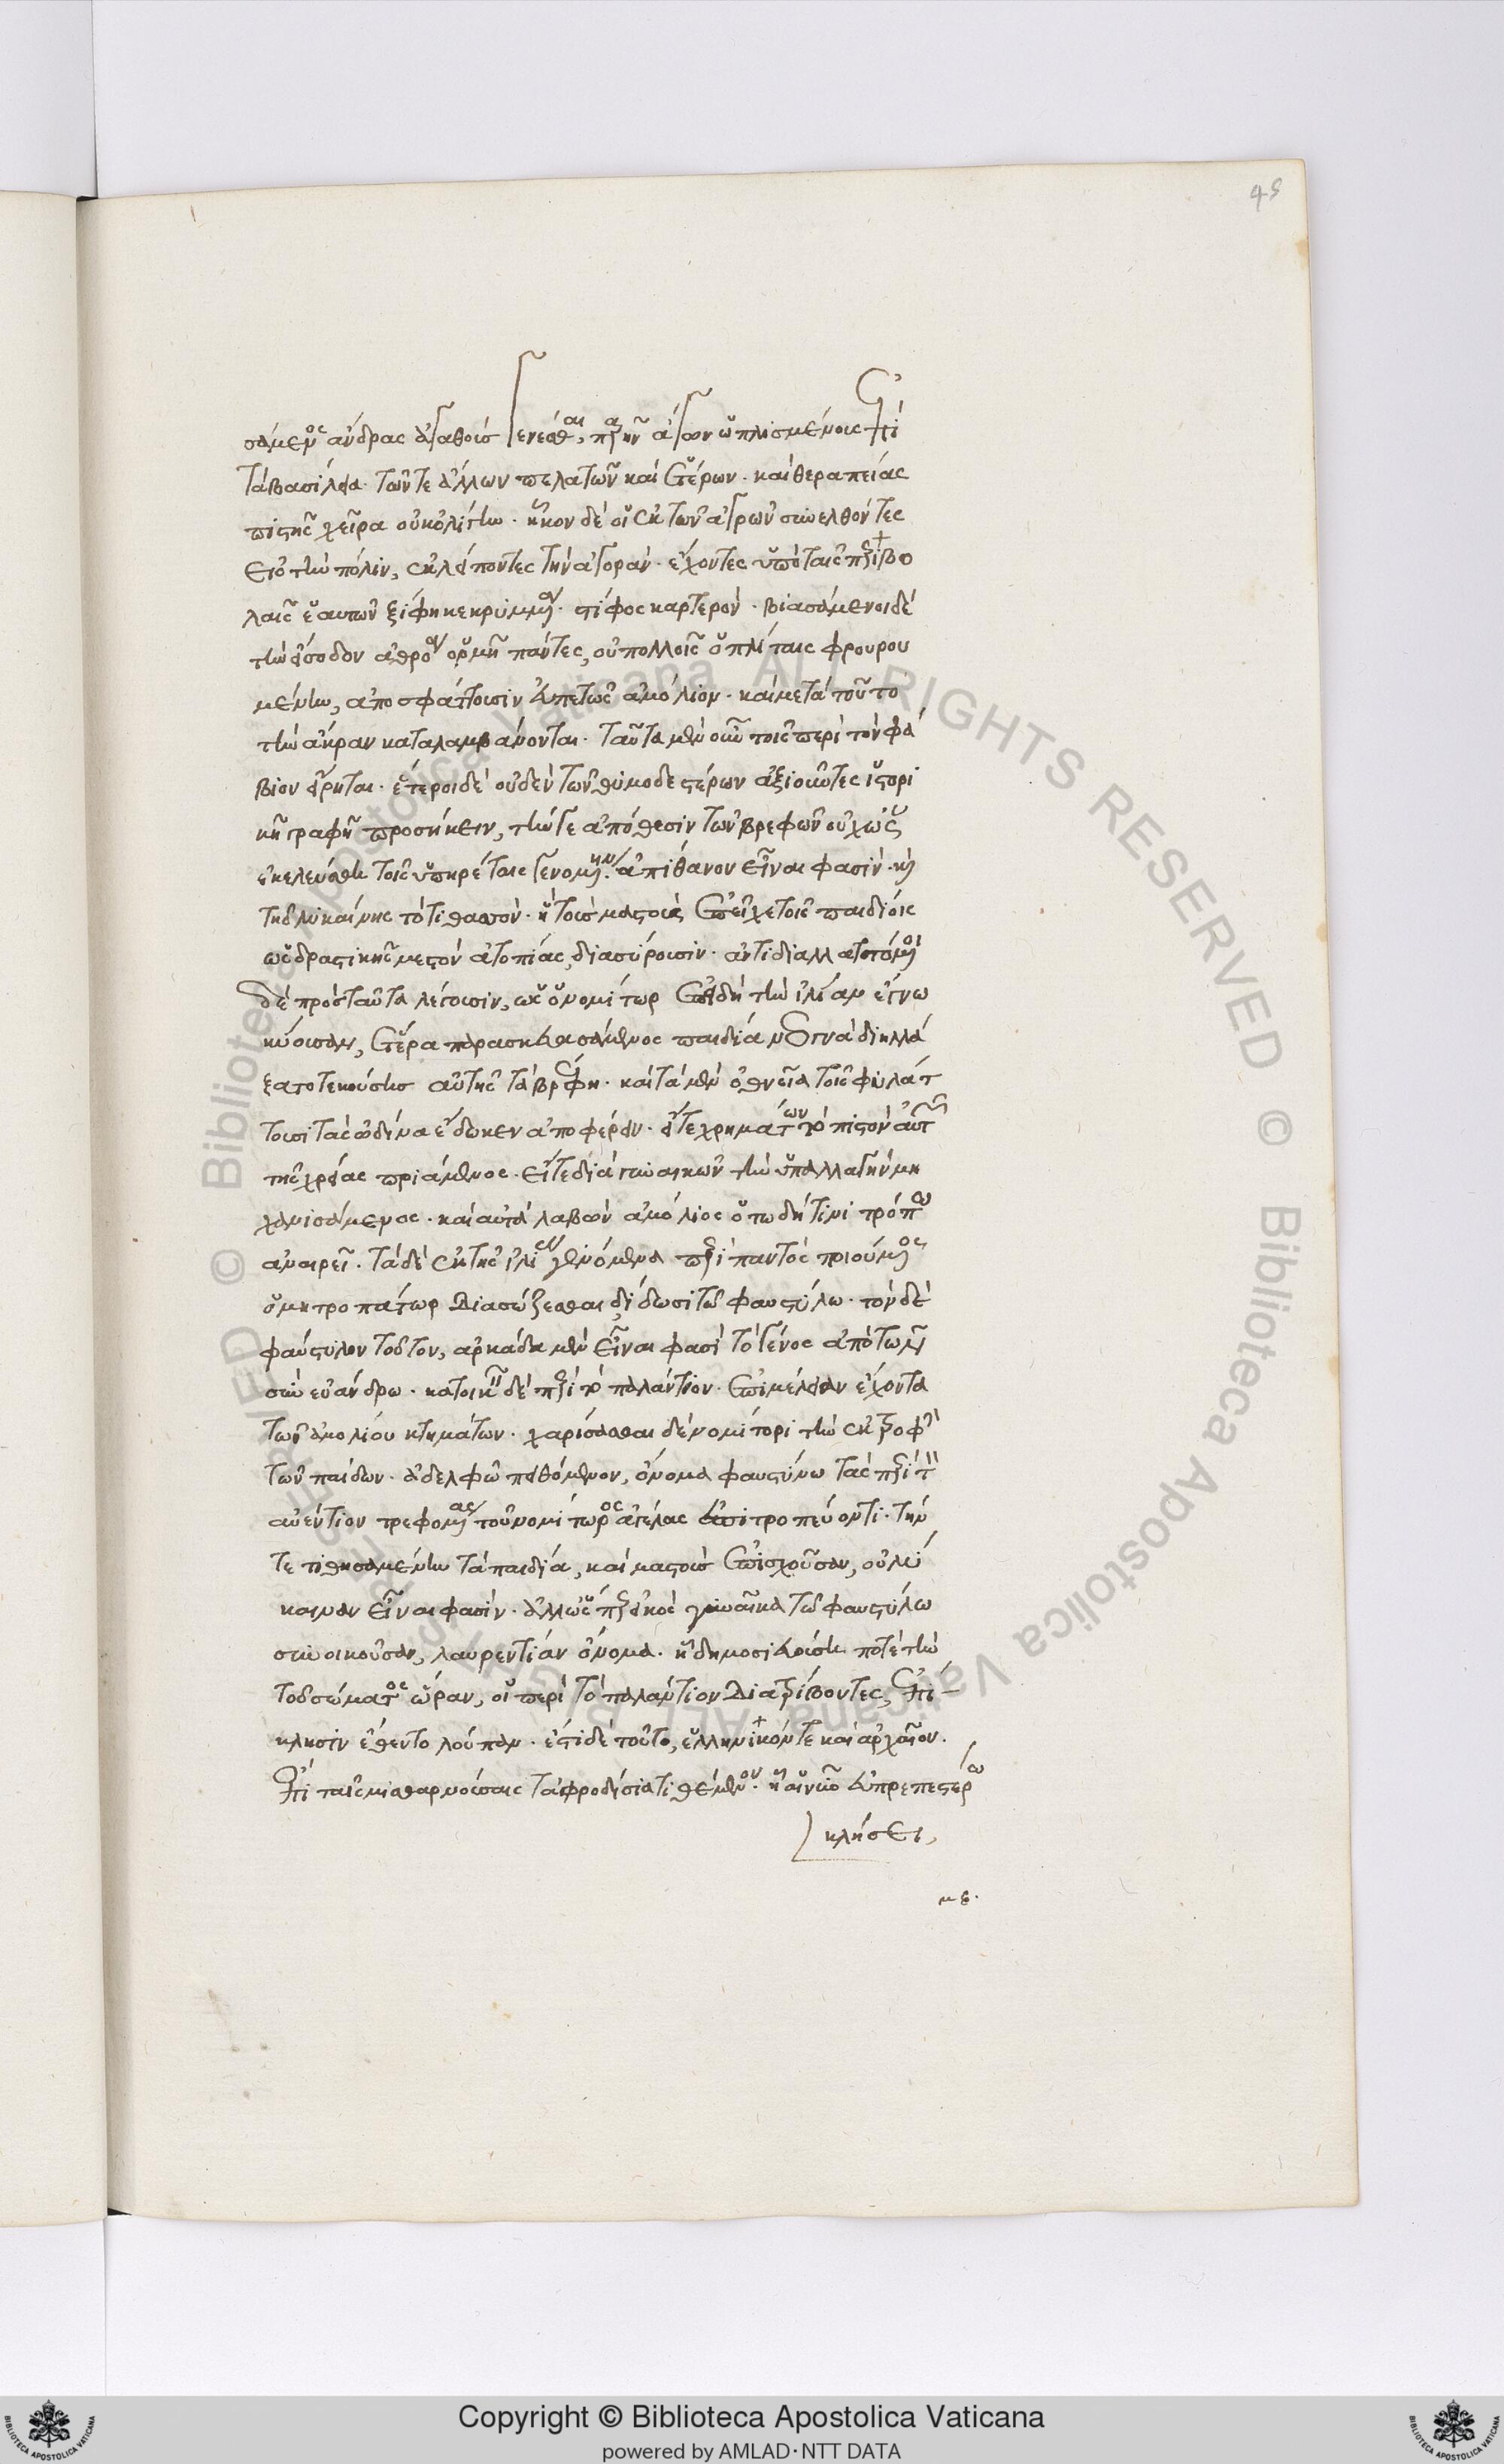 45
σάμενος ἄνδρας ἀγαθοὺς γενέσθαι, παρῆν ἄγων ὡπλισμένους ἐπὶ
τὰ βασίλεια. τῶν τε ἄλλων πελατῶν καὶ ἑτέρων. καὶ θεραπείας
πιστῆς χεῖρα οὐκ ὀλίγην. ἧκον δὲ οἱ ἐκ τῶν ἀγρῶν συνελθόντες
εἰς τὴν πόλιν, ἐκλιπόντες τὴν ἀγοράν. ἔχοντες ὑπὸ ταῖς περιβο
λαῖς ἑαυτῶν ξίφη κεκρυμμένα. στίφος καρτερόν. βιασάμενοι δὲ
τὴν εἴσοδον ἀθρόα ὁρμῇ πάντες, οὐ πολλοῖς ὁπλίταις φρουρου
μένην, ἀποσφάττουσιν εὐπετῶς ἀμόλιον. καὶ μετὰ τοῦτο
τὴν ἄκραν καταλαμβάνονται. ταῦτα μὲν οὖν τοῖς περὶ τὸν φά
βιον εἴρηται. ἕτεροι δὲ οὐδὲν τῶν μυθωδεστέρων ἀξιοῦντες ἱστορι
κῇ γραφῇ προσήκειν, τήν γε ἀπόθεσιν τῶν βρεφῶν οὐχ ὡς
ἐκελεύσθη τοῖς ὑπηρέταις γενομένην ἀπίθανον εἶναι φασίν. καὶ
τῆς λυκαίνης τὸ τιθασόν. ἣ τοὺς μαστοὺς ἐπεῖχε τοῖς παιδίοις
ὡς δραστικῆς μεστὸν ἀτοπίας, διασύρουσιν. ἀντιδιαλλαττόμενοι
δὲ πρὸς ταῦτα λέγουσιν, ὡς ὁ νομίτωρ ἐπειδὴ τὴν ἰλίαν ἔγνω
κύουσαν, ἕτερα παρασκευασάμενος παιδία νεογνὰ διηλλά
ξατο τεκούσης αὐτῆς τὰ βρέφη. καὶ τὰ μὲν ὀθνεῖα τοῖς φυλάτ
τουσι τὰς ὠδῖνα ἔδωκεν ἀποφέρειν. εἴτε χρημάτων τὸ πιστὸν αὐτῶν
τῆς χρείας πριάμενος. εἴτε διὰ γυναικῶν τὴν ὑπαλλαγὴν μη
χανισάμενος. καὶ αὐτὰ λαβὼν ἀμόλιος ὅτῳ δή τινι τρόπῳ
ἀναιρεῖ. τὰ δὲ ἐκ τῆς ἰλίας γενόμενα περὶ παντὸς ποιούμενος
ὁ μητροπάτωρ διασώζεσθαι, δίδωσι τῷ φαυστύλω. τὸν δὲ
φαύστυλον τοῦτον, ἀρκάδα μὲν εἶναι φασὶ τὸ γένος ἀπὸ τῶν
σὺν εὐάνδρω. κατοικεῖν δὲ περὶ τὸ παλάντιον. ἐπιμέλειαν ἔχοντα
τῶν ἀμολίου κτημάτων. χαρίσασθαι δὲ νομίτορι τὴν ἐκτροφὴν
τῶν παίδων. ἀδελφῶ πειθόμενον, ὄνομα φαυστύνω τὰς περὶ τὸν
αὐέντιον τρεφομένας τοῦ νομίτωρος ἀγέλας ἐπιτροπεύοντι. τήν
τε τιθησαμένην τὰ παιδία, καὶ μαστοὺς ἐπισχοῦσαν, οὐ λύ
καιναν εἶναι φασίν. ἀλλ' ὥσπερ εἰκὸς γυναῖκα τῶ φαυστύλω
συνοικοῦσαν, λαυρεντίαν ὄνομα. ᾗ δημοσιευούση ποτὲ τὴν
τοῦ σώματος ὥραν, οἱ περὶ τὸ παλάντιον διατρίβοντες, ἐπί
κλησιν ἔθεντο λούπαν. ἔστι δὲ τοῦτο, ἑλληνικόν τε καὶ ἀρχαῖον.
ἐπὶ ταῖς μισθαρνούσαις τἀφροδίσια τιθέμενον. ἣ νῦν εὐπρεπεστέρω
κλήσει,
με.